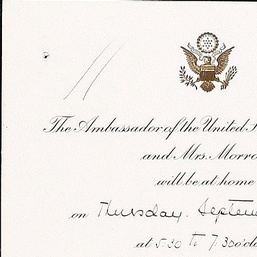 The Ambassador of the United
and Mrs. Morro
will be at home
on Thursday. Septem
at 5.30 to 7.30 o'clo